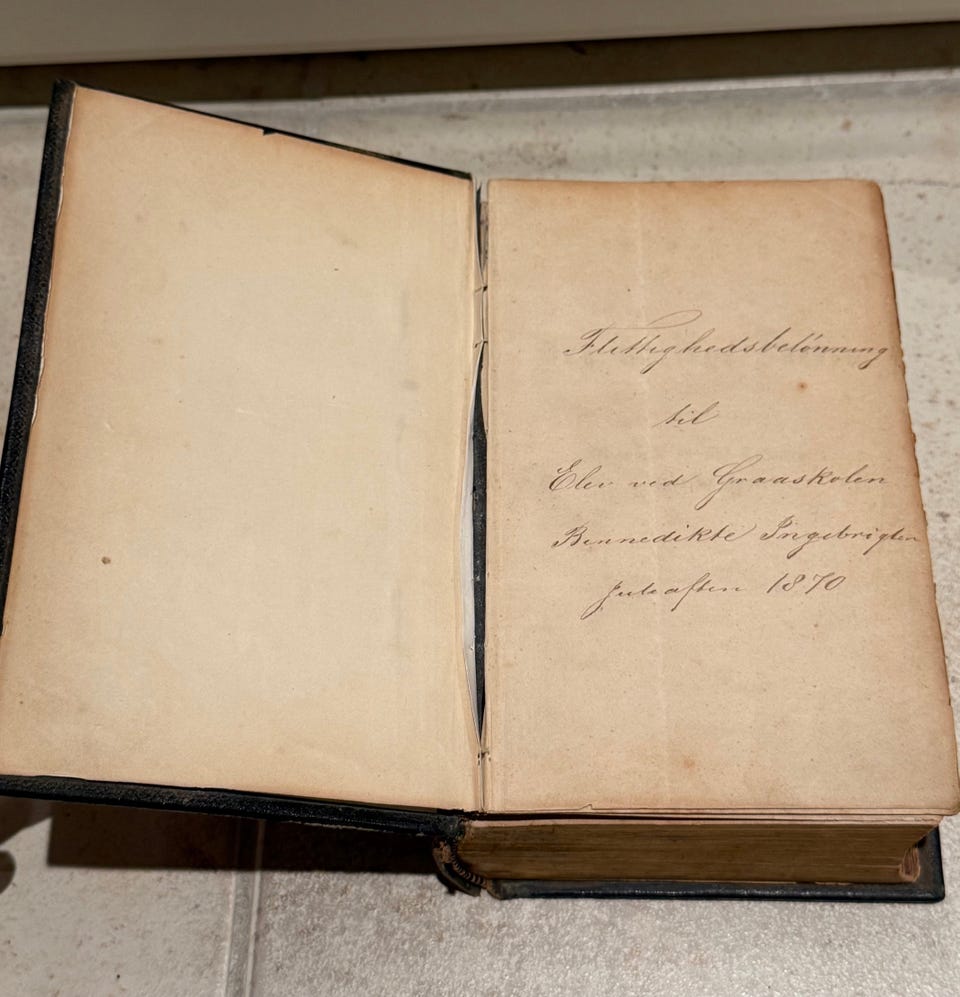 Flittighedsbelönning
til
Elev ved Graaskolen
Bennedikte Ingebrigtsen
Juleaften 1870